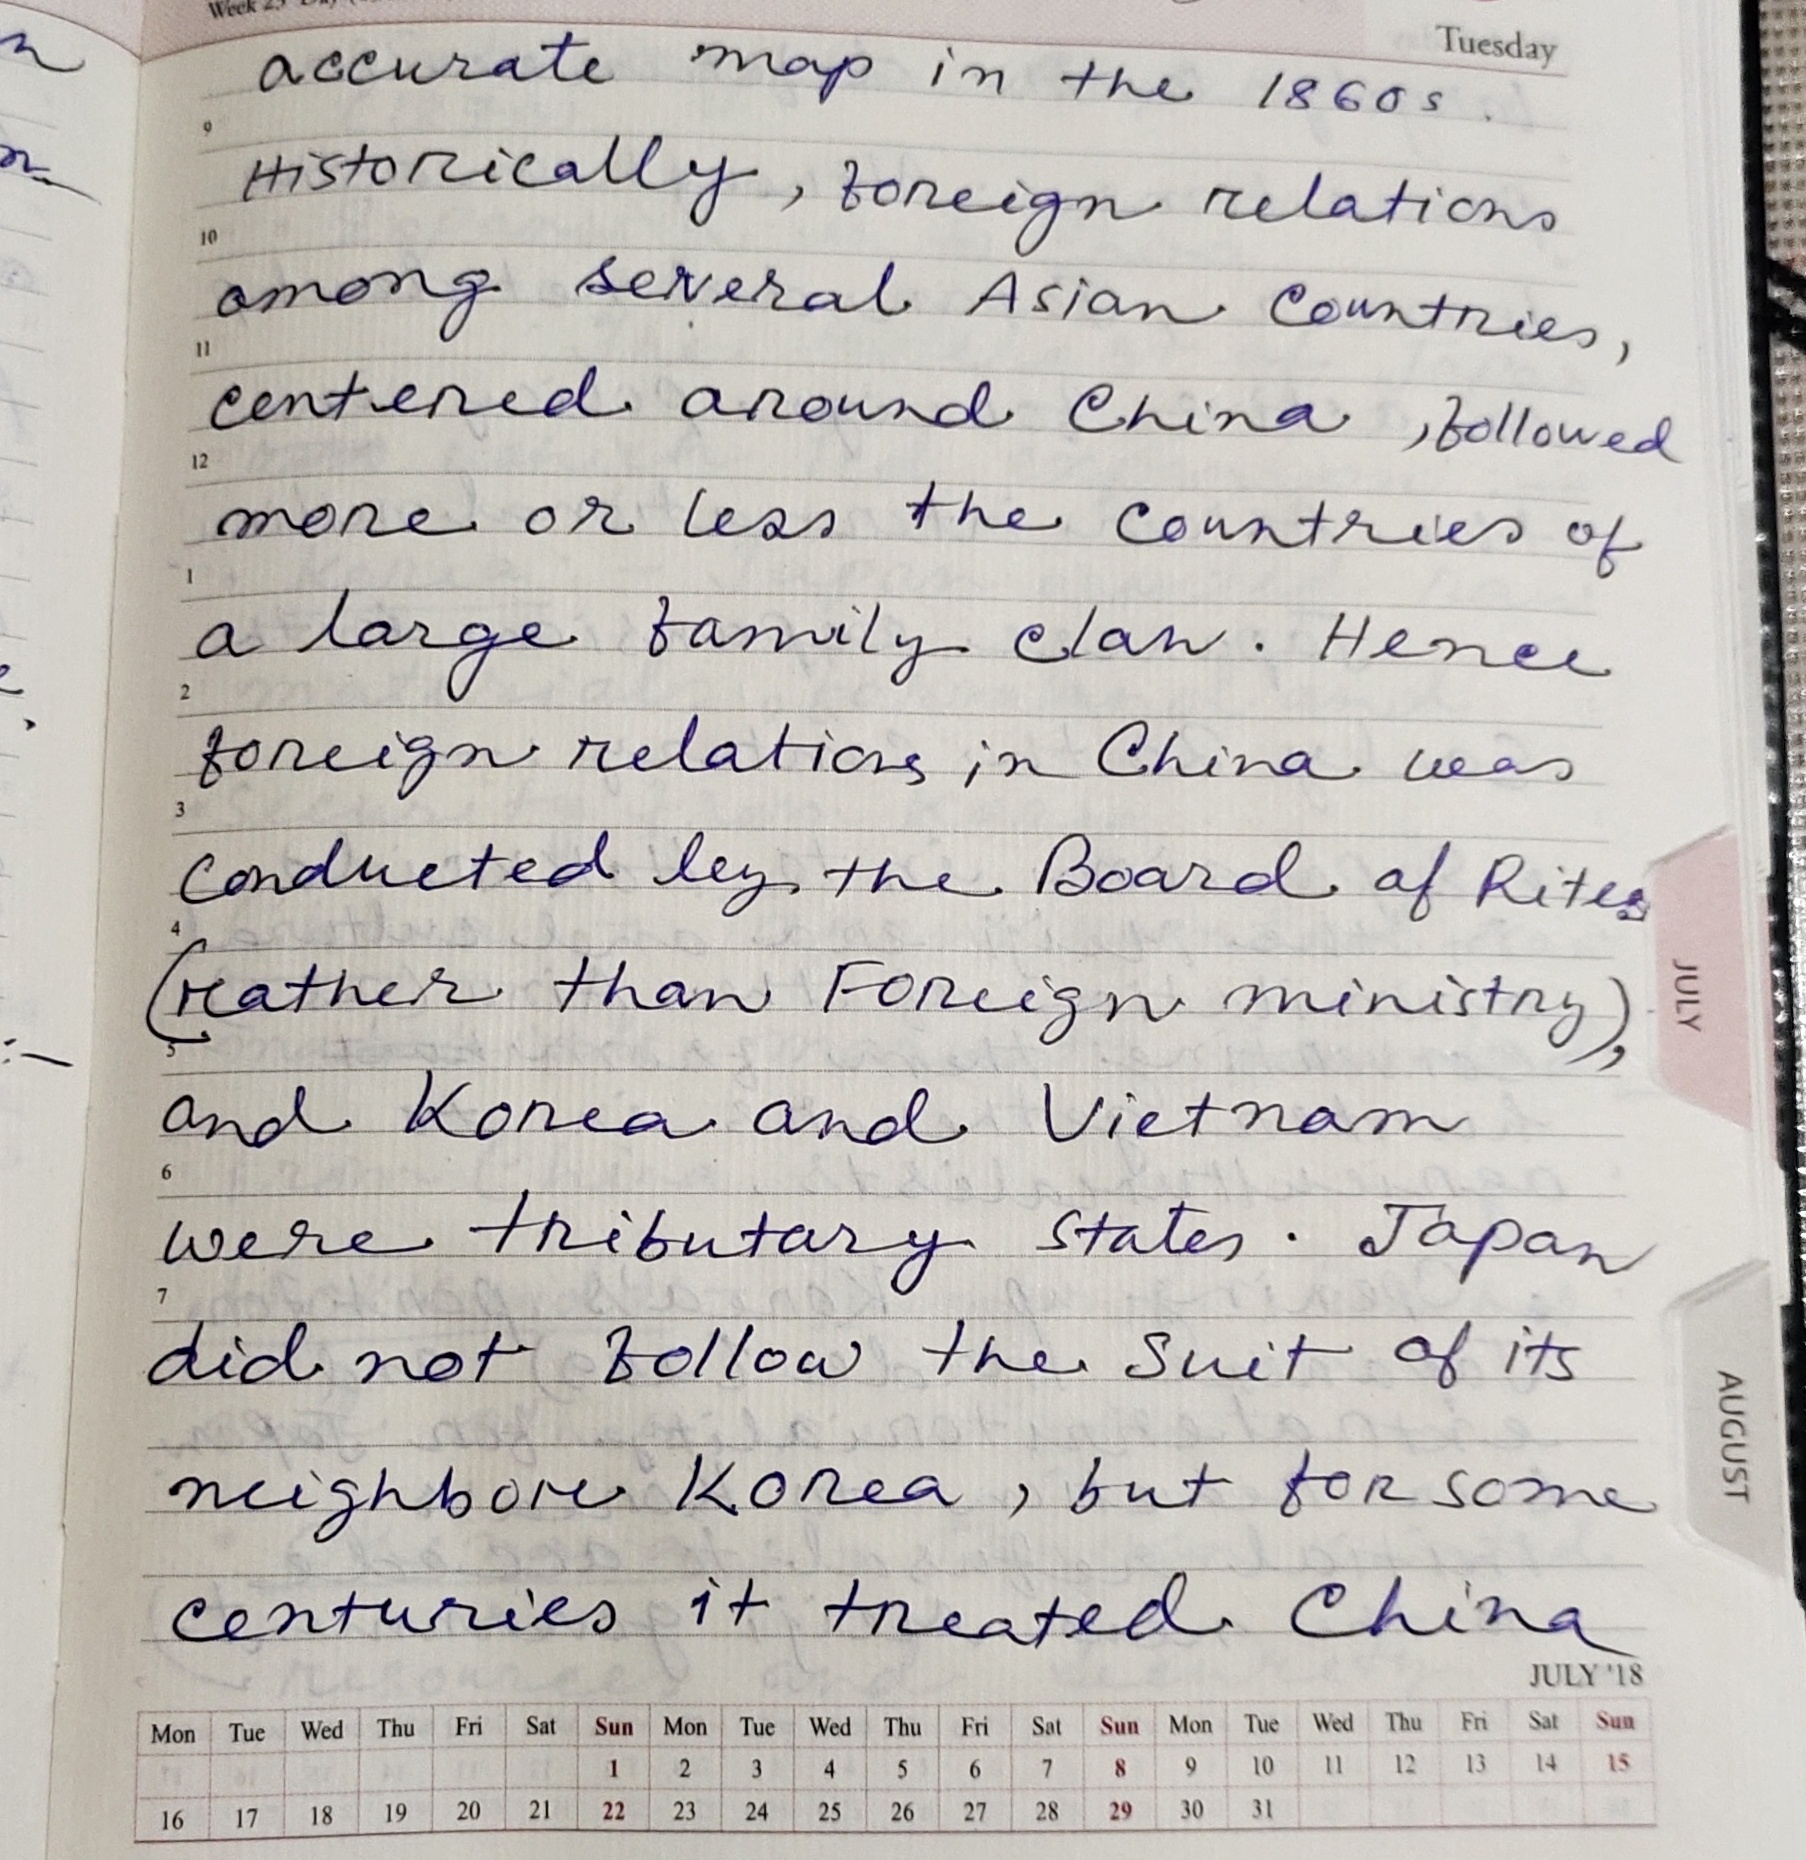 Tuesday
accurate map in the 1860s.
9
Historically, foreign relations
10
among several Asian Countries,
11
centered around China, followed
12
more or less the countries of
1
a large family clan. Hence
2
foreign relations in China was
3
conducted by the Board of Rites
4
(rather than Foreign ministry),
5
and Korea and Vietnam
6
were tributary states. Japan
7
did not follow the suit of its
neighbore Korea, but for some
centuries it treated China
JULY
AUGUST
JULY '18
Mon Tue Wed Thu Fri Sat Sun Mon Tue Wed Thu Fri Sat Sun Mon Tue Wed Thu Fri Sat Sun
1 2 3 4 5 6 7 8 9 10 11 12 13 14 15
16 17 18 19 20 21 22 23 24 25 26 27 28 29 30 31